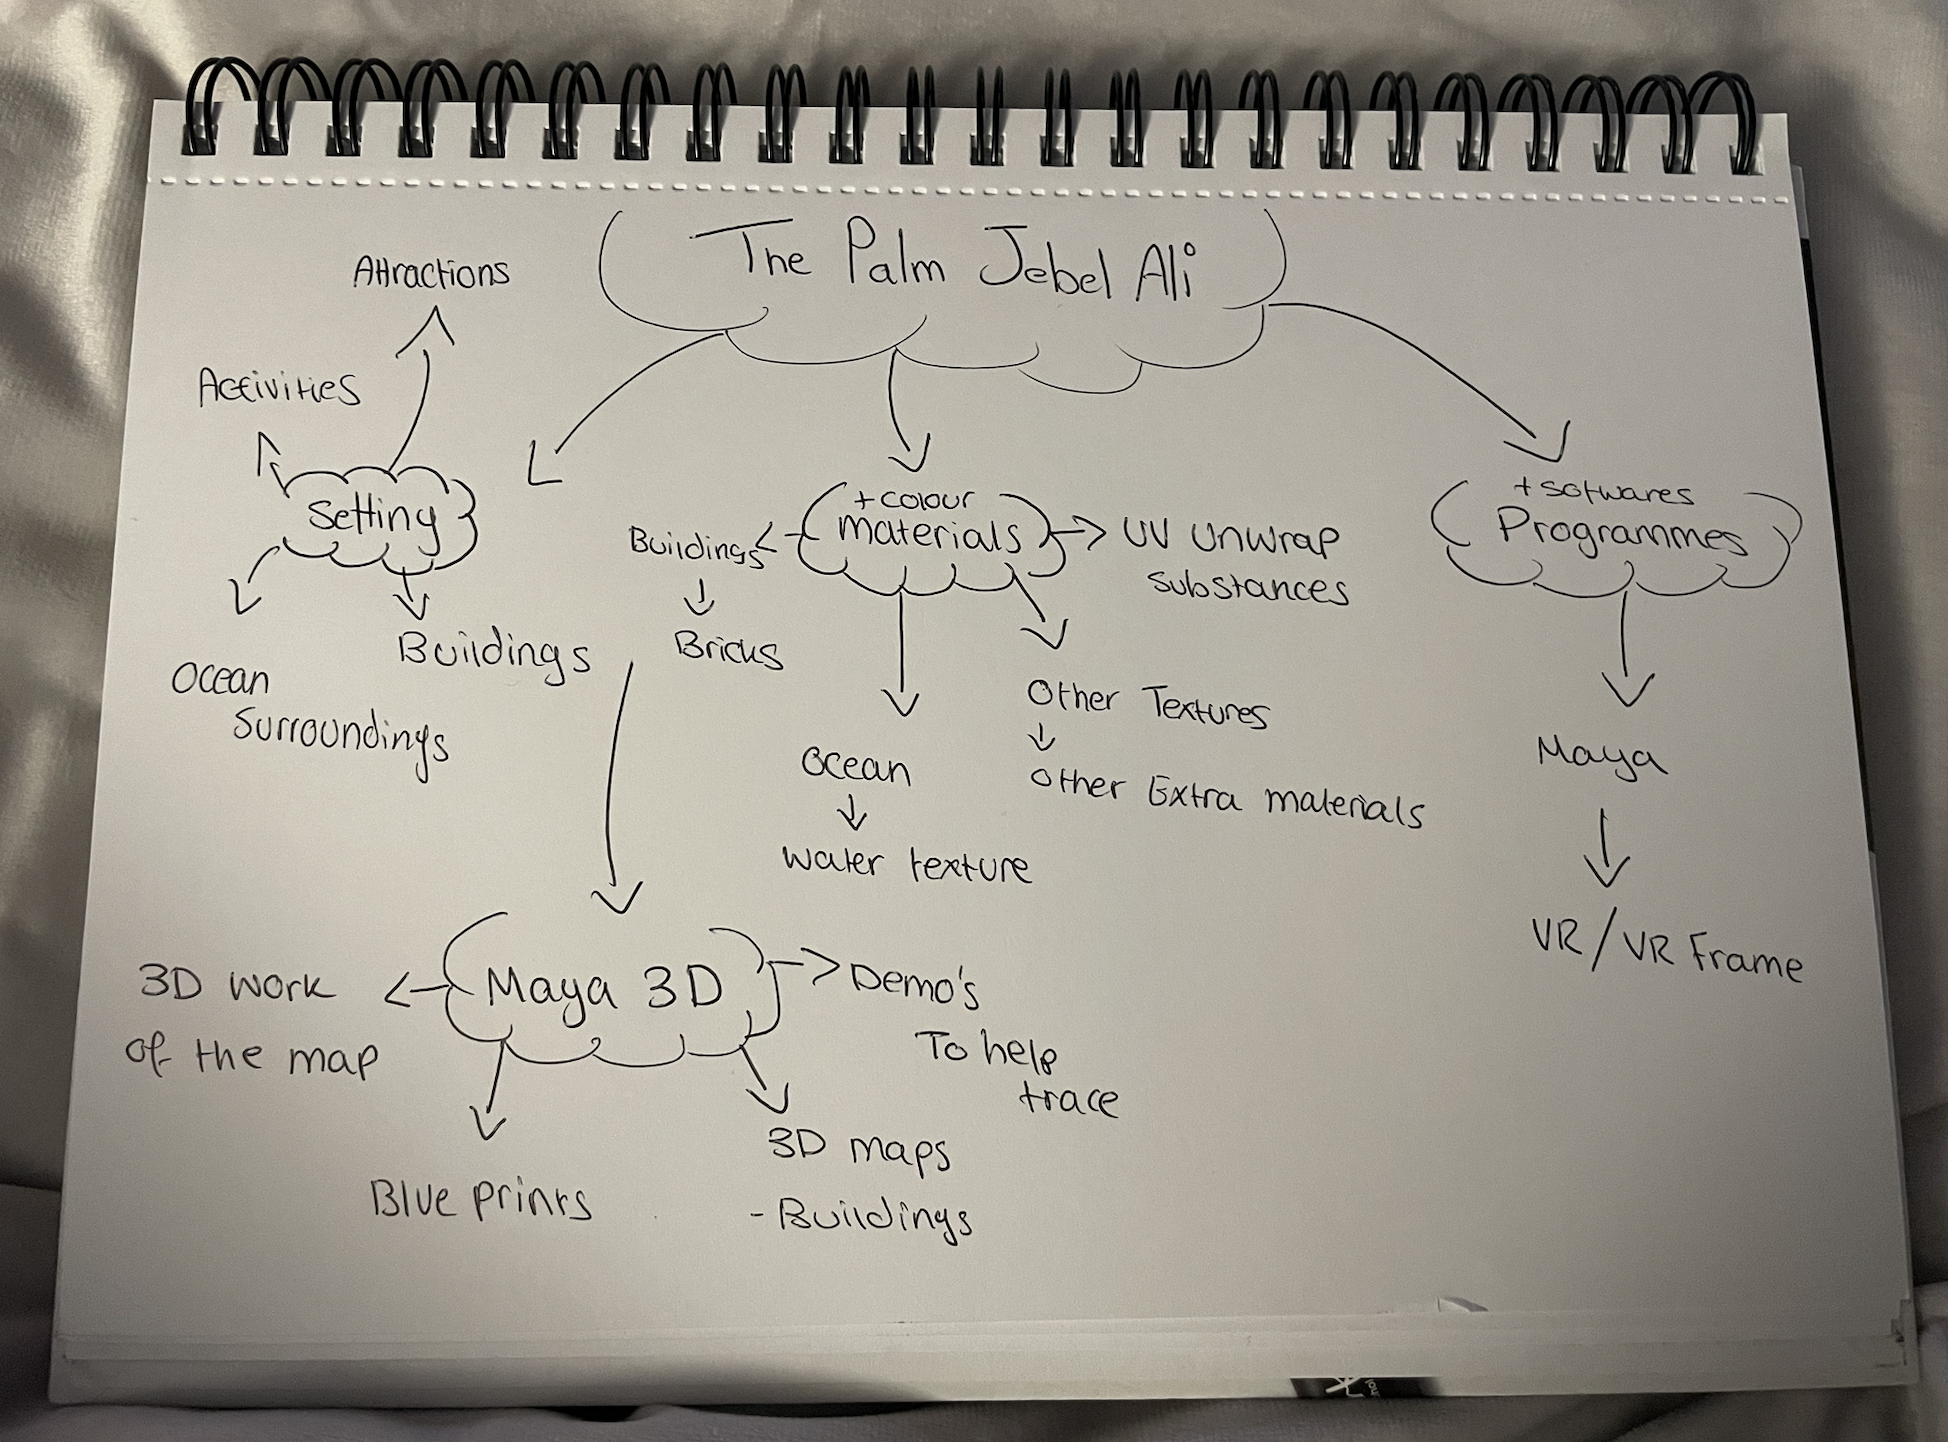 The Palm Jebel Ali
Attractions
Activities
Setting
Ocean
Surroundings
Buildings
+colour
materials
Buildings
Bricks
UV Unwrap
Substances
Ocean
water texture
Other Textures
Other Extra materials
+sotwares
Programmes
Maya
VR/VR Frame
Maya 3D
3D work
of the map
Blue prints
3D maps
-Buildings
Demo's
To help
trace